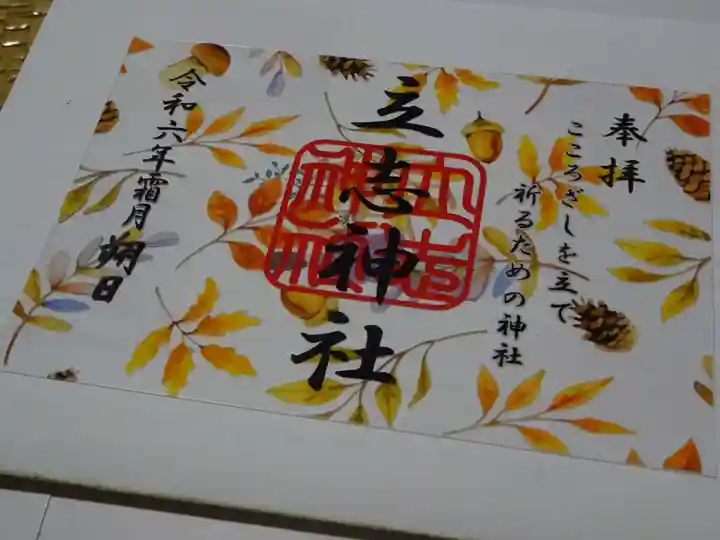 奉拝
こころざしを立て
祈るための神社
立志神社
令和六年霜月朔日